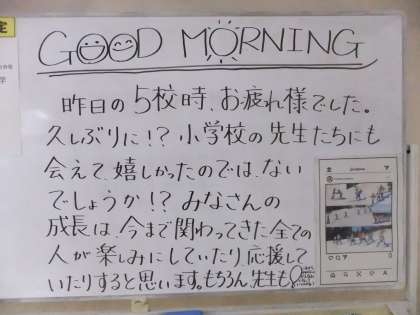 GOOD MORNING
昨日の5校時、お疲れ様でした。
久しぶりに!?小学校の先生たちにも
会えて、嬉しかったのでは、ない
でしょうか!?みなさんの
成長は、今まで関わってきた全ての
人が楽しみにしていたり、応援して
いたりすると思います。もちろん、先生も